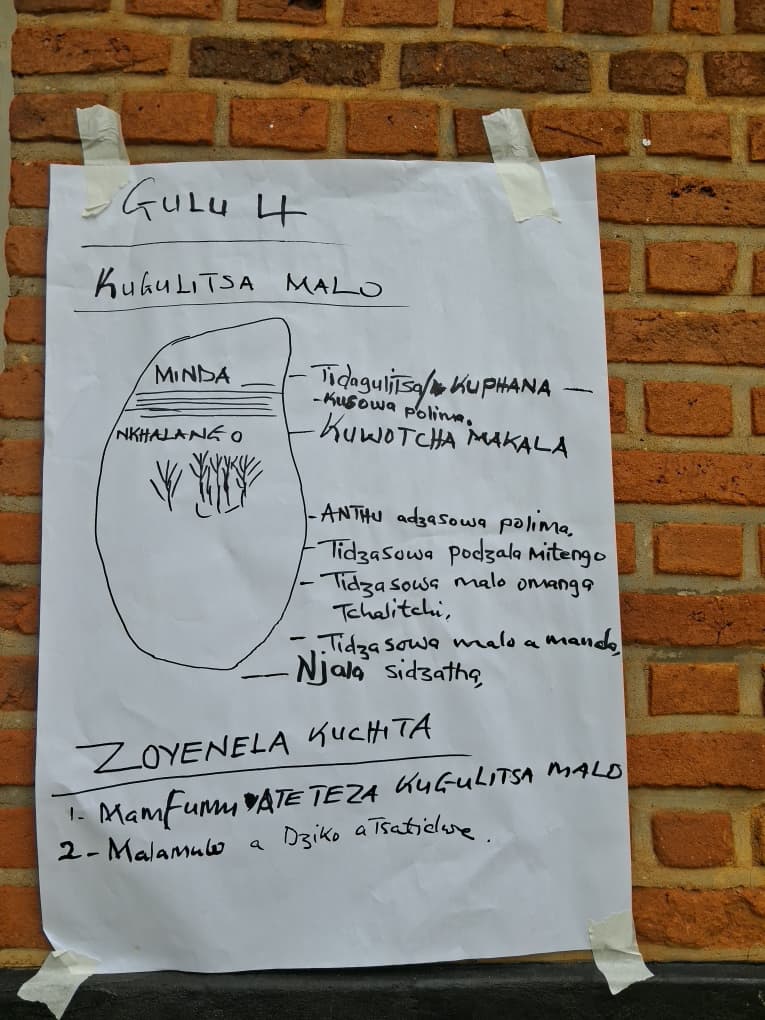 GULU 4
KUGULITSA MALO
MINDA
- Tidagulitsa/ KUPHANA -
- Kusowa polima.
NKHALANGO
- KUWOTCHA MAKALA
- ANTHU adzasowa polima,
- Tidzasowa podzala Mitengo
- Tidzasowa malo omanga
Tchalitchi,
- Tidzasowa malo a manda,
- Njala sidzatha,
ZOYENELA KUCHITA
1- MAMFUMU ATETEZA KUGULITSA MALO
2- Malamulo a Dziko atsatidwe.